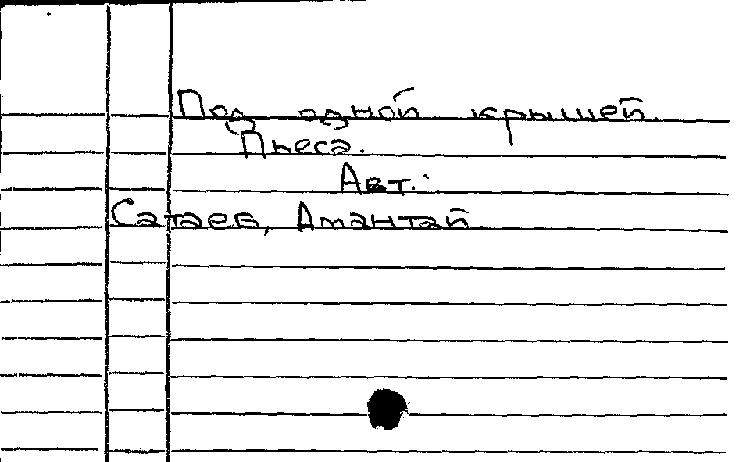 Под одной крышей.
Пьеса.
Авт.:
Сатаев, Амантай